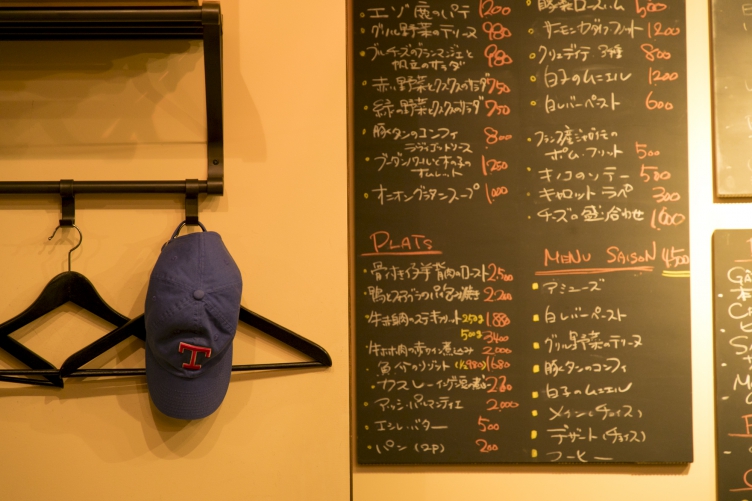 エゾ鹿のパテ 1200
グリル野菜のテリーヌ 980
ブルーチーズのブランマンジェと
帆立のサラダ 980
赤い野菜とクスクスのサラダ 750
緑の野菜とクスクスのサラダ 750
豚タンのコンフィ
ラヴィゴットソース 800
ブーダンノワールときのこの
オムレット 1250
オニオングラタンスープ 1000
PLATS
骨付き仔羊背肉のロースト 2500
2200
牛赤身肉のステキフリット 250g 1880
500g 3400
牛ホホ肉の赤ワイン煮込み 2,000
魚介のリゾット 1680
カスレ
アッシ・パルマンティエ 2,000
エシレバター 500
パン (2P) 200
豚肩ロースハム
サーモン 1200
クリュディテ 3種 800
白子のムニエル 1200
白レバーペースト 600
フランス産ジャガイモの
ポム・フリット 500
キノコのソテー 580
キャロットラペ 300
チーズの盛り合わせ 1600
MENU SAISON 4500
アミューズ
白レバーペースト
グリル野菜のテリーヌ
豚タンのコンフィ
白子のムニエル
メイン(チョイス)
デザート(チョイス)
コーヒー
T